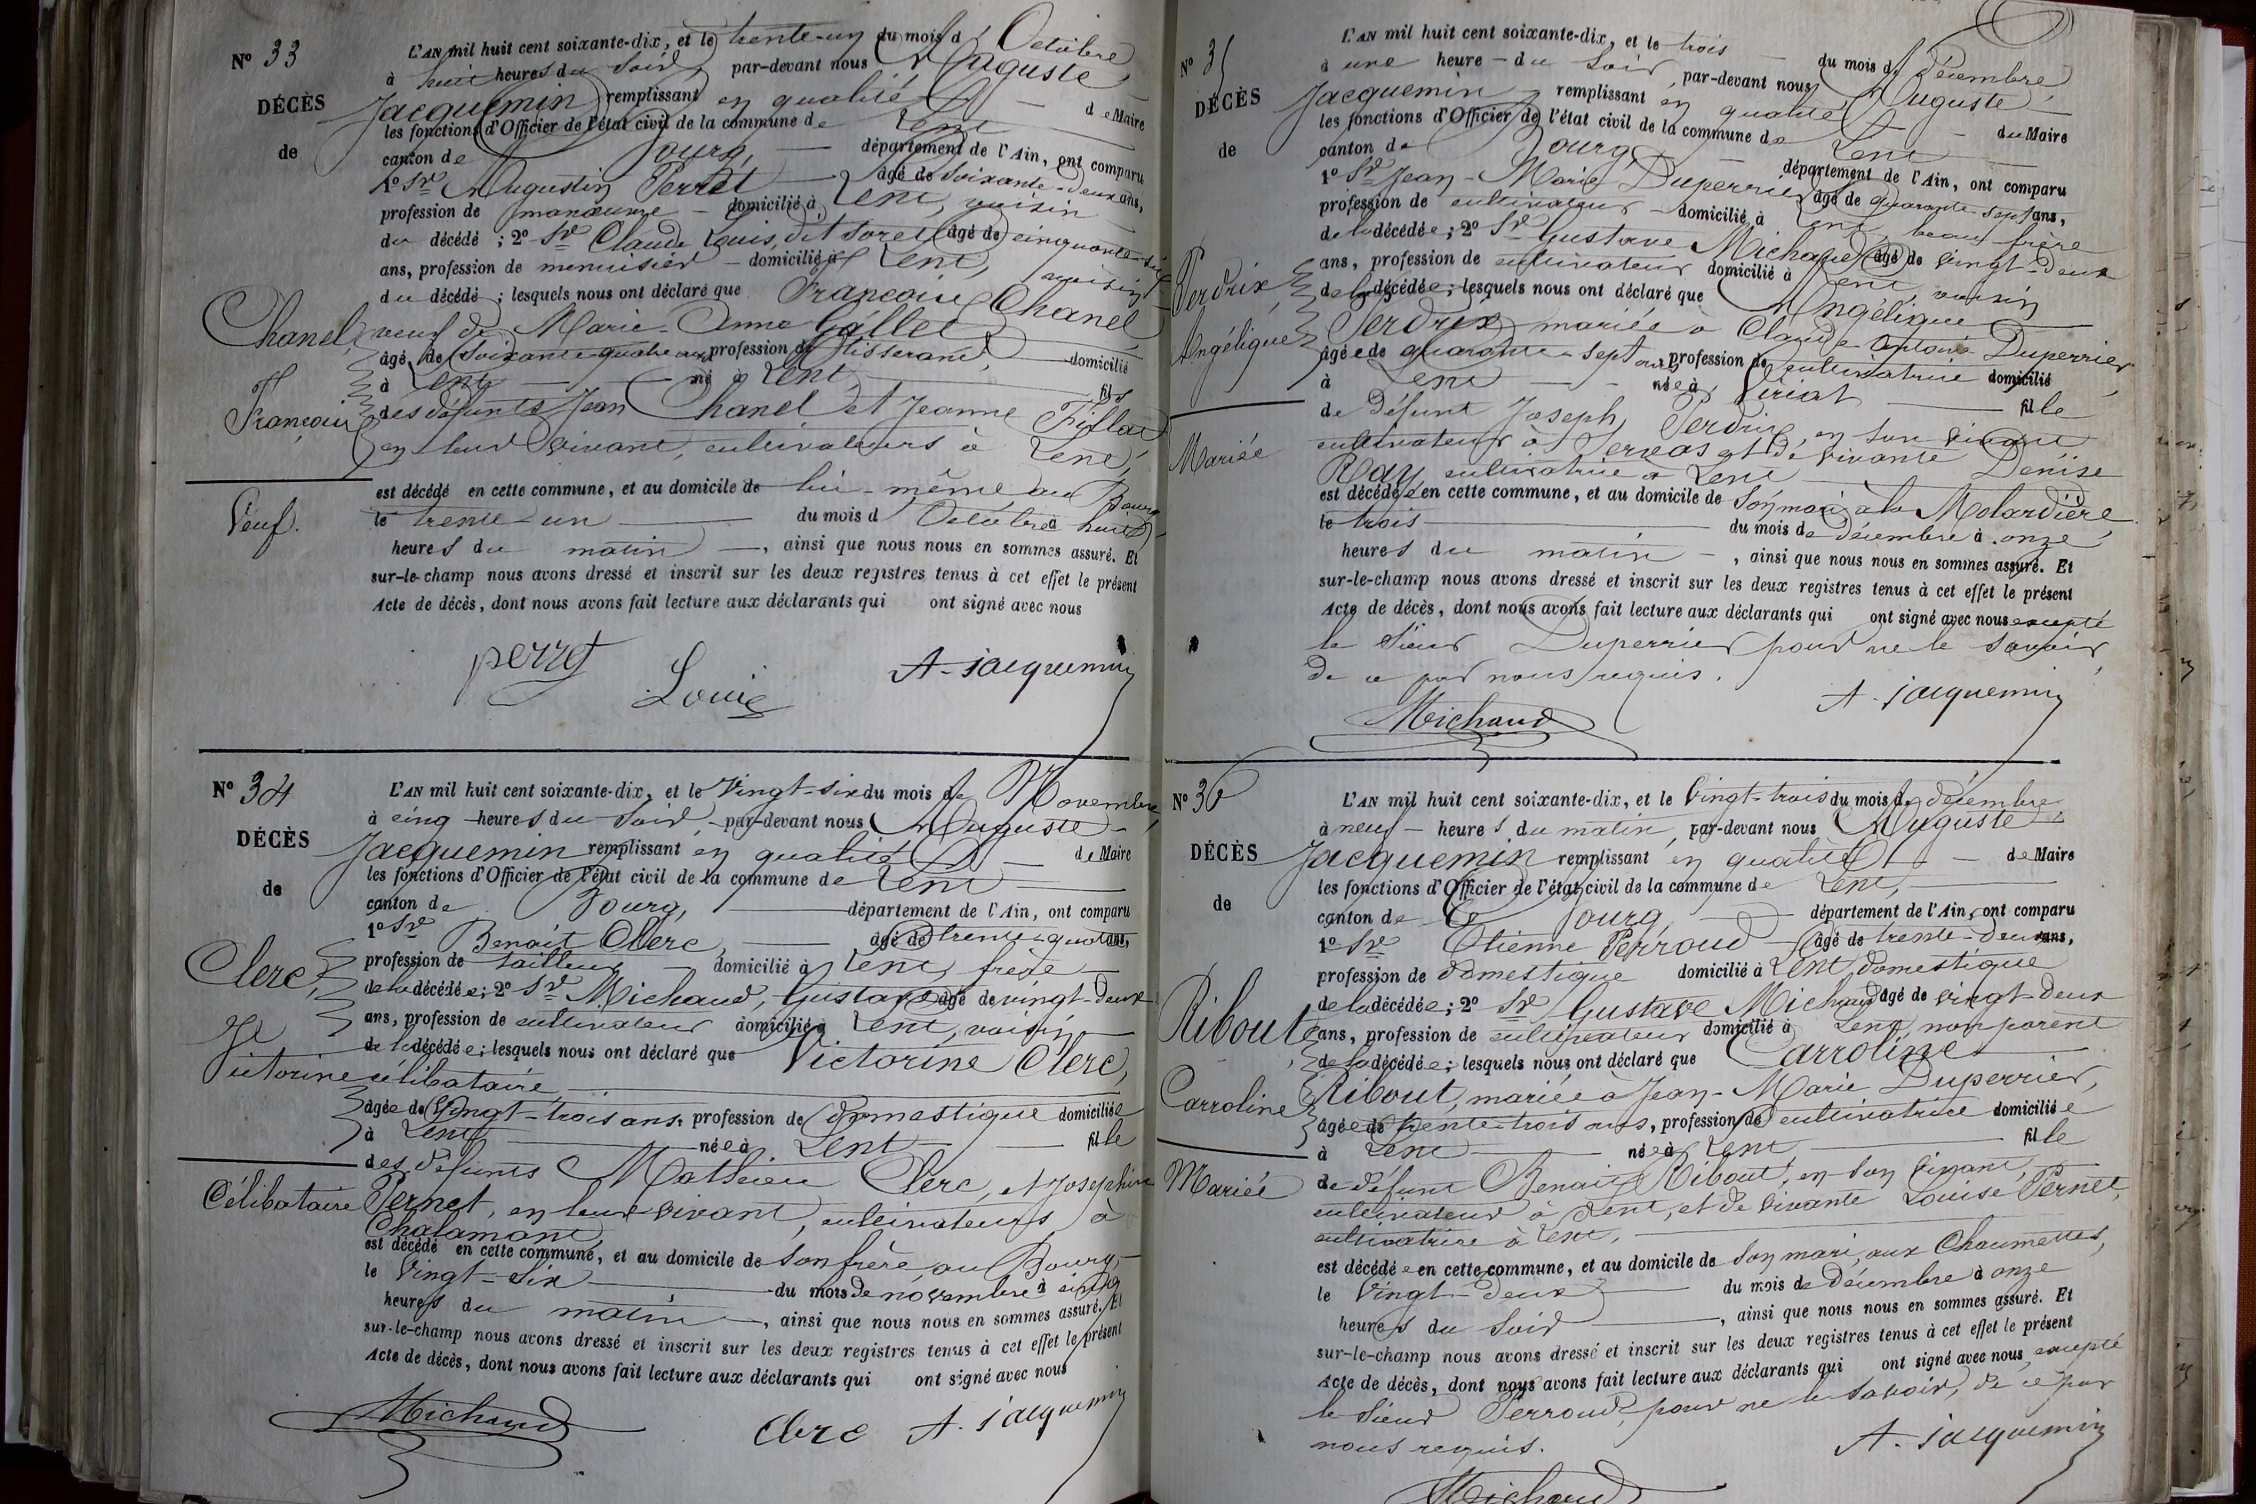 N° 33
DÉCÈS
de
Chanel
François
Veuf.
L'AN mil huit cent soixante-dix, et le trente-un du mois d'Octobre
à huit heures du soir, par-devant nous Auguste
Jacquemin remplissant en qualité de Maire
les fonctions d'Officier de l'état civil de la commune de Lent
canton de Bourg, département de l'Ain, ont comparu
1° Sr Augustin Perret âgé de soixante-deux ans,
profession de manœuvre domicilié à Lent, voisin
du décédé ; 2° Sr Claude Louis, dit Soret âgé de cinquante-six
ans, profession de menuisier domicilié à Lent, voisin
du décédé ; lesquels nous ont déclaré que François Chanel,
veuf de Marie-Anne Gallet
âgé de soixante-quatre ans profession de tisserand, domicilié
à Lent né à Lent, fils
des défunts Jean Chanel et Jeanne Fillat
en leur vivant, cultivateurs à Lent,
est décédé en cette commune, et au domicile de lui-même au Bourg
le trente-un du mois d'Octobre à huit
heures du matin, ainsi que nous nous en sommes assuré. Et
sur-le-champ nous avons dressé et inscrit sur les deux registres tenus à cet effet le présent
Acte de décès, dont nous avons fait lecture aux déclarants qui ont signé avec nous
perret
Louis
A. jacquemin
N° 34
DÉCÈS
de
Clerc,
Victorine
Célibataire
L'AN mil huit cent soixante-dix, et le vingt-six du mois de Novembre
à cinq heures du soir, par-devant nous Auguste
Jacquemin remplissant en qualité de Maire
les fonctions d'Officier de l'état civil de la commune de Lent
canton de Bourg, département de l'Ain, ont comparu
1° Sr Benoit Clerc, âgé de trente-quatre ans,
profession de tailleur domicilié à Lent, frère
de la décédée ; 2° Sr Michaud, Gustave âgé de vingt-deux
ans, profession de cultivateur domicilié à Lent, voisin
de la décédée ; lesquels nous ont déclaré que Victorine Clerc,
célibataire
âgée de vingt-trois ans, profession de domestique domiciliée
à Lent née à Lent fille
des défunts Mathieu Clerc, et Josephine
Pernet, en leur vivant, cultivateurs à
Chalamont,
est décédé en cette commune, et au domicile de son frère, au Bourg,
le vingt-six du mois de novembre à cinq
heures du matin, ainsi que nous nous en sommes assuré. Et
sur-le-champ nous avons dressé et inscrit sur les deux registres tenus à cet effet le présent
Acte de décès, dont nous avons fait lecture aux déclarants qui ont signé avec nous
Michaud
Clerc
A. jacquemin
N° 35
DÉCÈS
de
Perdrix
Angélique
Mariée
L'AN mil huit cent soixante-dix, et le trois du mois de décembre,
à une heure du soir par-devant nous Auguste
Jacquemin remplissant en qualité du Maire
les fonctions d'Officier de l'état civil de la commune de Lent
canton de Bourg, département de l'Ain, ont comparu
1° Sr Jean-Marie Duperrier âgé de quarante-sept ans,
profession de cultivateur domicilié à Lent, beau-frère
de la décédée ; 2° Sr Gustave Michaud âgé de vingt-deux
ans, profession de cultivateur domicilié à Lent, voisin
de la décédée ; lesquels nous ont déclaré que Angélique
Perdrix, mariée à Claude-Antoine Duperrier
âgée de quarante-sept ans, profession de cultivatrice domicilié
à Lent née à Viriat fille
de défunt Joseph Perdrix, en son vivant
cultivateur à Servas et de vivante Denise
Ray, cultivatrice à Lent
est décédée en cette commune, et au domicile de son mari à la Molardière,
le trois du mois de décembre à onze
heures du matin, ainsi que nous nous en sommes assuré. Et
sur-le-champ nous avons dressé et inscrit sur les deux registres tenus à cet effet le présent
Acte de décès, dont nous avons fait lecture aux déclarants qui ont signé avec nous excepté
le sieur Duperrier pour ne le savoir,
de ce par nous requis.
Michaud
A. jacquemin
N° 36
DÉCÈS
de
Ribout
Carroline
Mariée
L'AN mil huit cent soixante-dix, et le vingt-trois du mois de décembre
à neuf heures du matin, par-devant nous Auguste
Jacquemin remplissant en qualité de Maire
les fonctions d'Officier de l'état civil de la commune de Lent,
canton de Bourg, département de l'Ain, ont comparu
1° Sr Etienne Perroud âgé de trente-deux ans,
profession de domestique domicilié à Lent, domestique
de la décédée ; 2° Sr Gustave Michaud âgé de vingt-deux
ans, profession de cultivateur domicilié à Lent, non parent
de la décédée ; lesquels nous ont déclaré que Carroline
Ribout, mariée à Jean-Marie Duperrier,
âgée de trente-trois ans, profession de cultivatrice domiciliée
à Lent née à Lent, fille
de défunt Benoit Ribout, en son vivant,
cultivateur à Lent, et de vivante Louise Pernet,
cultivatrice à Lent,
est décédée en cette commune, et au domicile de son mari, aux Chaumettes,
le vingt-deux du mois de décembre à onze
heures du soir, ainsi que nous nous en sommes assuré. Et
sur-le-champ nous avons dressé et inscrit sur les deux registres tenus à cet effet le présent
Acte de décès, dont nous avons fait lecture aux déclarants qui ont signé avec nous, excepté
le sieur Perroud, pour ne le savoir, de ce par
nous requis.
A. jacquemin
Michaud